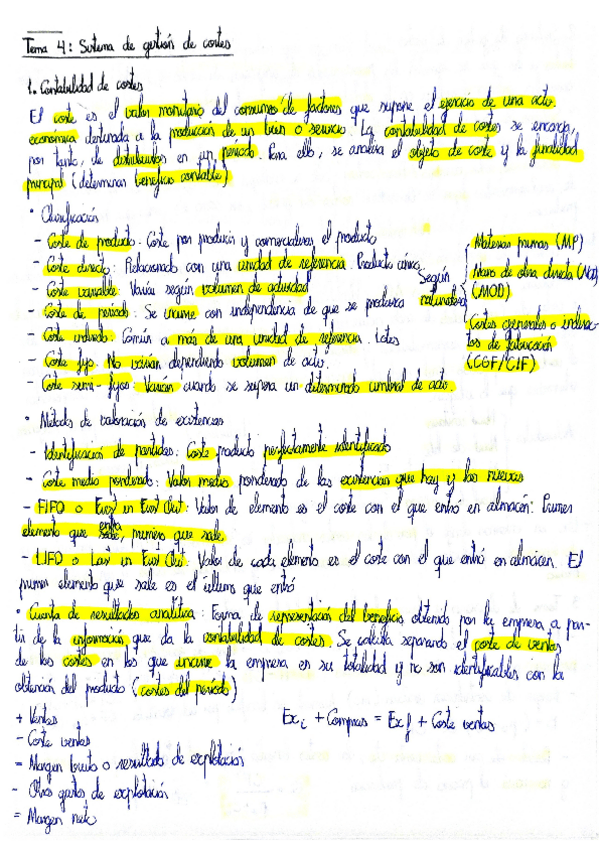 Tema 4: Sistema de gestión de costes
1. Contabilidad de costes
El coste es el valor monetario del consumo de factores que supone el ejercicio de una acto.
económica destinada a la producción de un bien o servicio. La contabilidad de costes se encarga,
por tanto, de distribuirlos en un periodo. Para ello, se analiza el objeto de coste y la finalidad
principal (determinar beneficio contable)
• Clasificación
- Coste de producto: Coste por producir y comercializar el producto
- Coste directo: Relacionado con una unidad de referencia. Producto único
- Coste variable: Varía según volumen de actividad
- Coste de periodo: Se incurre con independencia de que se produzca
- Coste indirecto: Común a más de una unidad de referencia. Lotes
- Coste fijo: No varían dependiendo volumen de acto.
- Coste semi-fijos: Varían cuando se supera un determinado umbral de acto.
Según
naturaleza
Materias primas (MP)
Mano de obra directa
(MOD)
Costes generales o indirec-
tos de fabricación
(CGF/CIF)
• Métodos de valoración de existencias
- Identificación de partidas: Coste producto perfectamente identificado
- Coste medio ponderado: Valor medio ponderado de las existencias que hay y las nuevas
- FIFO o First in First Out: Valor de elemento es el coste con el que entró en almacén: Primer
elemento que entra, primero que sale
- LIFO o Last in First Out: Valor de cada elemento es el coste con el que entró en almacen. El
primer elemento que sale es el último que entró
• Cuenta de resultados analítica: Forma de representación del beneficio obtenido por la empresa a par-
tir de la información que da la contabilidad de costes. Se calcula separando el coste de ventas
de los costes en los que incurre la empresa en su totalidad y no son identificables con la
obtención del producto (costes del periodo)
+ Ventas
- Coste ventas
= Margen bruto o resultado de explotación
- Otros gastos de explotación
= Margen neto
Ex i + Compras = Ex f + Coste ventas